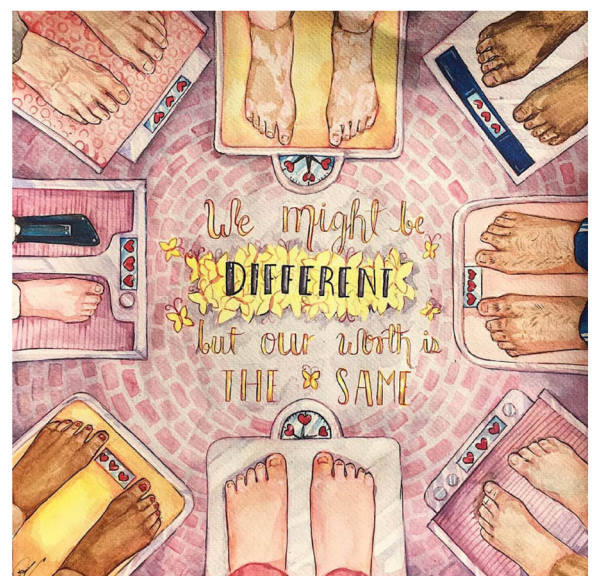 We might be
DIFFERENT
but our worth is
THE SAME